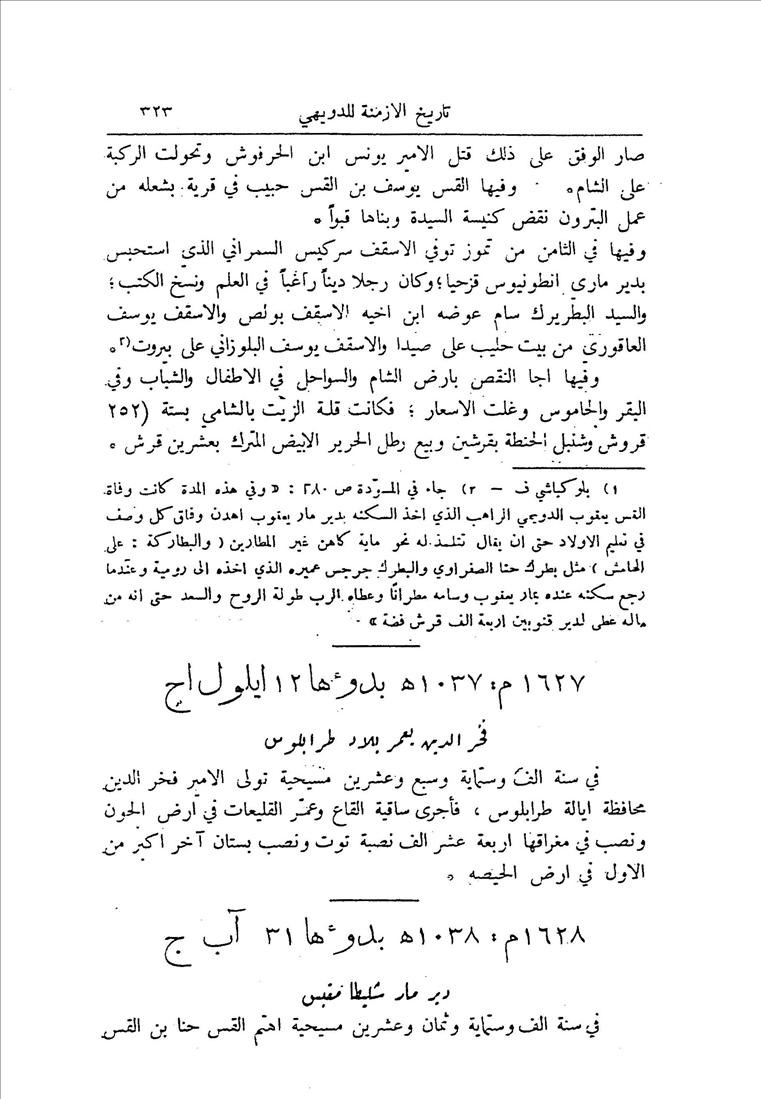 تاريخ الازمنة للدويهي ٣٢٣
صار الوفق على ذلك قتل الامير يونس ابن الحرفوش وتحولت الركبة
على الشام. وفيها القس يوسف بن القس حبيب في قرية بشعله من
عمل البترون نقض كنيسة السيدة وبناها قبواً.
وفيها في الثامن من تموز توفي الاسقف سركيس السمراني الذي استحبس
بدير ماري انطونيوس قزحيا؛ وكان رجلا ديناً راغباً في العلم ونسخ الكتب؛
والسيد البطريرك سام عوضه ابن اخيه الاسقف بولص والاسقف يوسف
العاقوري من بيت حليب على صيدا والاسقف يوسف البلوزاني على بيروت(٢.
وفيها اجا النقص بارض الشام والسواحل في الاطفال والشباب وفي
البقر والجاموس وغلت الاسعار؛ فكانت قلة الزيت بالشامي بستة (٢٥٢
قروش وشنبل الحنطة بقرشين وبيع رطل الحرير الابيض المترك بعشرين قرش.
١) بلوكباشي ف – ٢) جاء في المسودّة ص ٢٨٠: «وفي هذه المدة كانت وفاة
القس يعقوب الدويهي الراهب الذي اخذ السكنه بدير مار يعقوب اهدن وفاق كل وصف
في تعليم الاولاد حتى ان يقال تتلمذ له نحو ماية كاهن غير المطارين (والبطاركة: على
الهامش) مثل بطرك حنا الصفراوي والبطرك جرجس عميره الذي اخذه الى رومية وعندما
رجع سكنه عنده بمار يعقوب وسامه مطرانًا وعطاه الرب طولة الروح والسعد حتى انه من
ماله عطى لدير قنوبين اربعة الف قرش فضة».
١٦٢٧م: ١٠٣٧ه بدوءها ١٢ ايلول اج
فخر الدين يعمر بلاد طرابلوس
في سنة الف وستماية وسبع وعشرين مسيحية تولى الامير فخر الدين
محافظة ايالة طرابلوس، فأجرى ساقية القاع وعمّر القليعات في ارض الجون
ونصب في مغراقها اربعة عشر الف نصبة توت ونصب بستان آخر اكبر من
الاول في ارض الحيصه.
١٦٢٨م: ١٠٣٨ه بدوءها ٣١ آب ج
دير مار شليطا مقبس
في سنة الف وستماية وثمان وعشرين مسيحية اهتم القس حنا بن القس